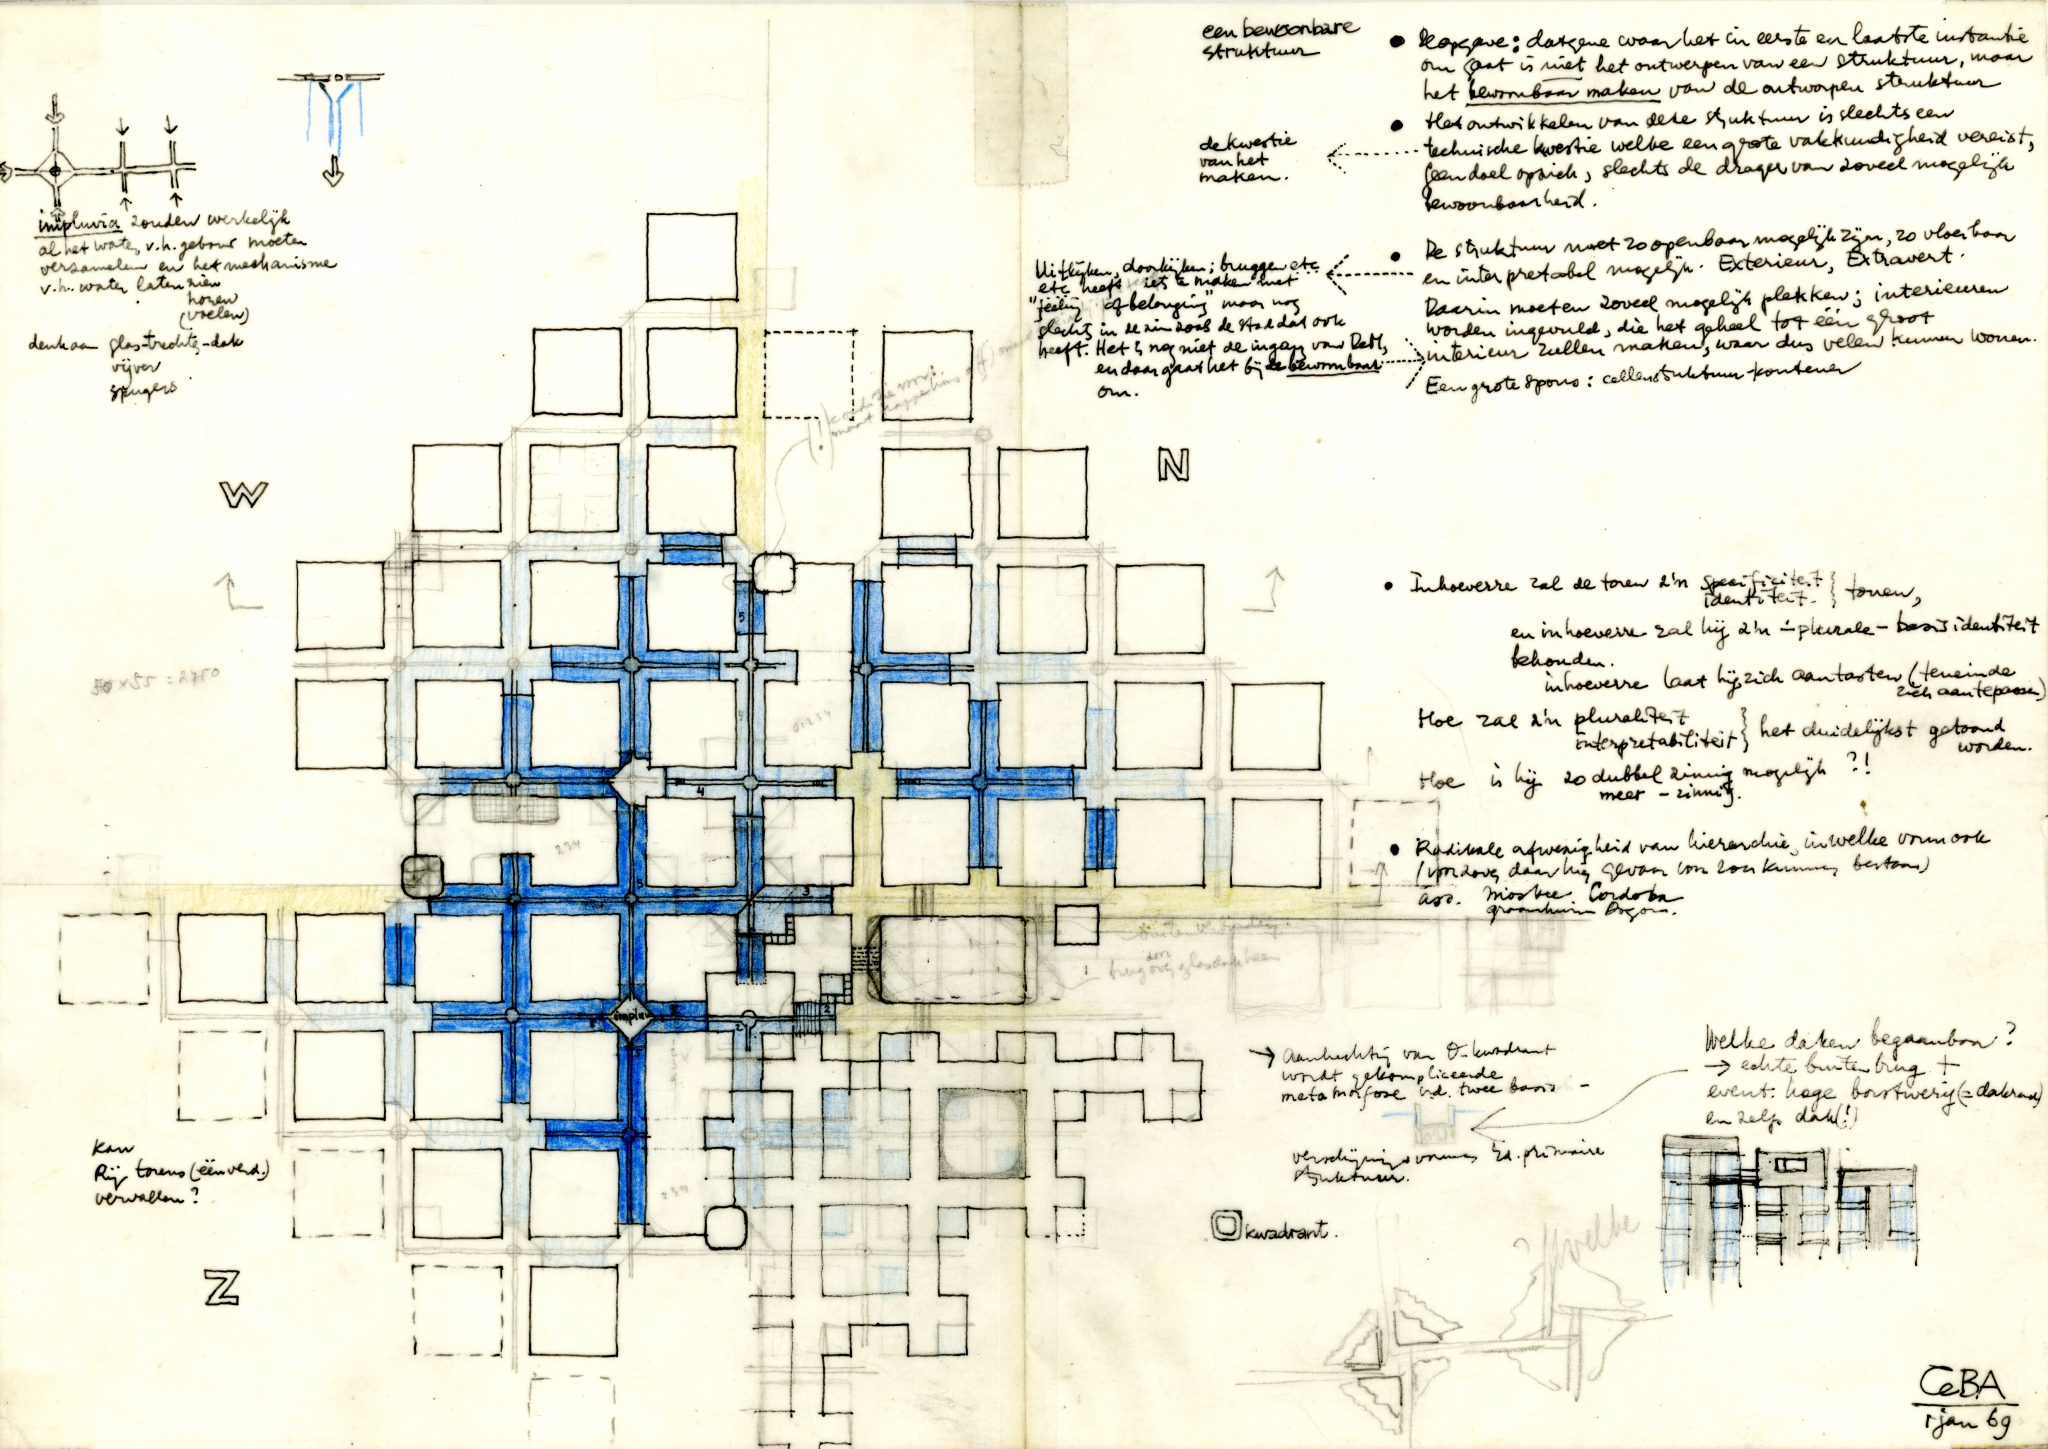 een bewoonbare
struktuur
De opgave: datgene waar het in eerste en laatste instantie
om gaat is niet het ontwerpen van een struktuur, maar
het bewoonbaar maken van de ontworpen struktuur
Het ontwikkelen van deze struktuur is slechts een
technische kwestie welke een grote vakkundigheid vereist,
geen doel op zich, slechts de drager van zoveel mogelijk
bewoonbaarheid.
de kwestie
van het
maken.
De struktuur moet zo openbaar mogelijk zijn, zo vloeibaar
en interpretabel mogelijk. Exterieur, Extravert.
Daarin moeten zoveel mogelijk plekken; interieuren
worden ingevuld, die het geheel tot één groot
interieur zullen maken, waar dus velen kunnen wonen.
Een grote spons: cellenstruktuur-
Uitkijken, doorkijken; bruggen etc.
etc heeft iets te maken met
of belonging" maar nog
slechts in de zin zoals de stad dat ook
heeft. Het is nog niet de ingang van
en daar gaat het bij de bewoonbaar
om.
impluvia zouden werkelijk
al het water v.h. gebouw moeten
verzamelen en het mechanisme
v.h. water laten zien
horen
(voelen)
denk aan glas-trechter-dak
vijver
spugers
W
N
50 x 55 = 2750
Inhoeverre zal de toren z'n specificiteit
identiteit. } tonen,
en inhoeverre zal hij z'n plurale- basis identiteit
behouden.
inhoeverre laat hij zich aantasten (teneinde
zich aantepassen)
Hoe zal z'n pluraliteit
interpretabiliteit } het duidelijkst getoond
worden.
Hoe is hij zo dubbelzinnig mogelijk ?!
meer - zinnig.
Radikale afwezigheid van hierarchie, in welke vorm ook
daar hij gevaar zou kunnen bestaan)
ass. Moskee Cordoba
5
01234
4
234
5
3
implu
2
2
234
Aanhechting van kwadrant
wordt gekompliceerde
metamorfose v.d. twee basis -
verschijningsvormen v.d. primaire
struktuur.
Welke daken begaanbaar?
→ echte buiten brug +
event. hoge borstwering (= dakrand)
en zelfs dak (!)
kan
Rij torens (één verd.)
vervallen?
kwadrant.
? welke
Z
CeBA
1 jan 69